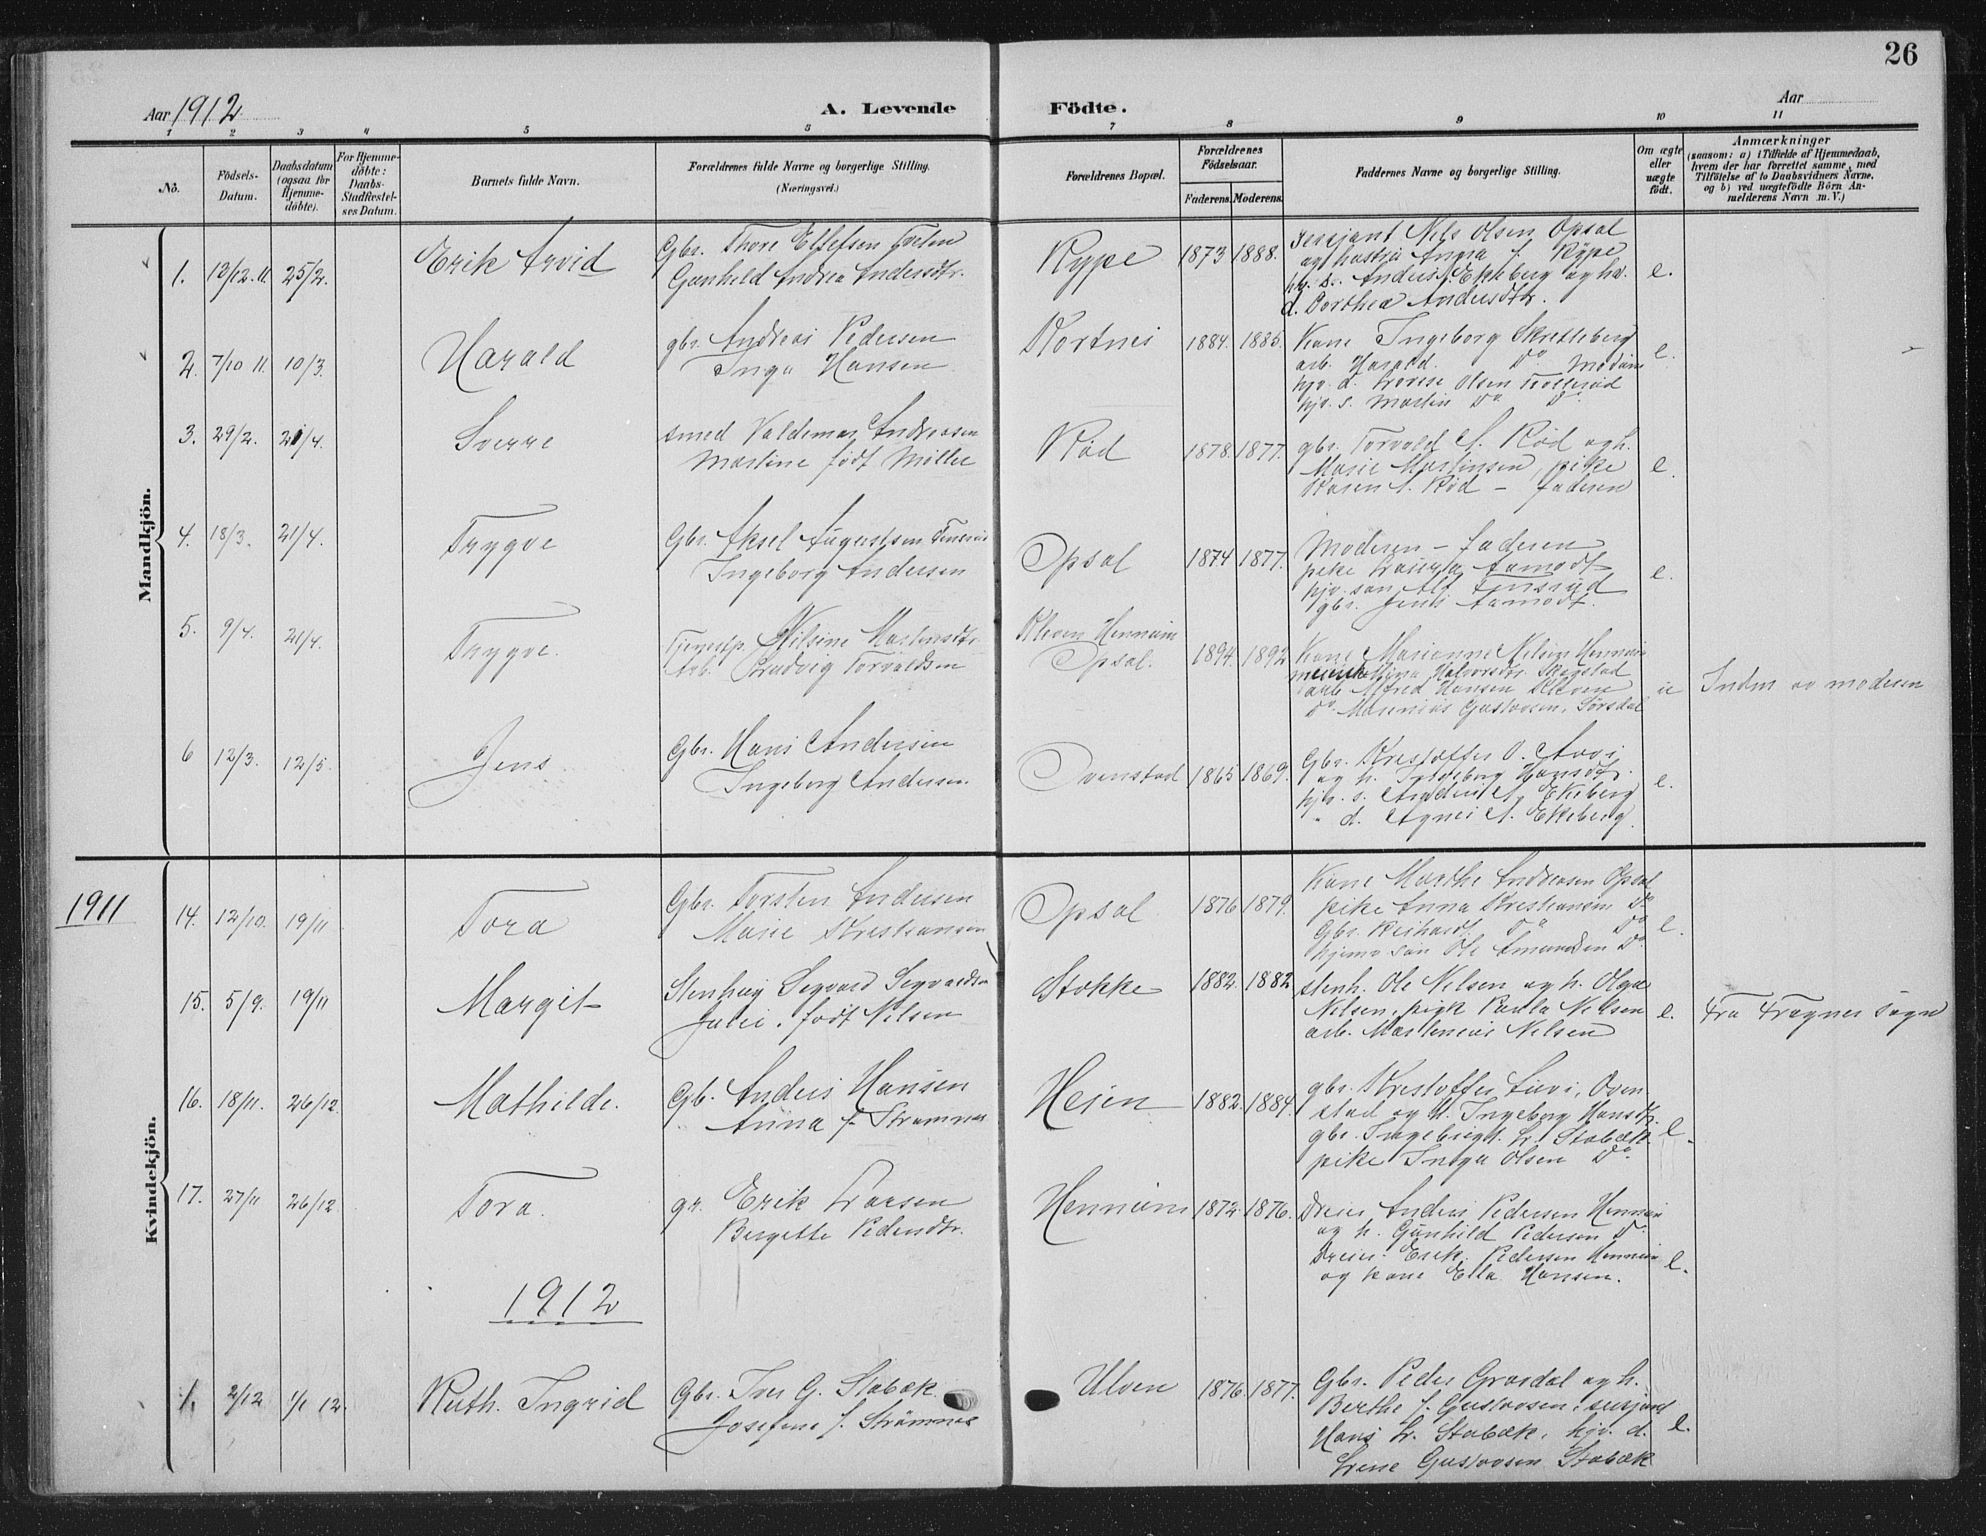 26
Aar 1912
A. Levende
Födte.
Aar
1 2 3 4 5 6 7 8 9 10 11
No.
Födsels-
Datum.
Daabsdatum
(ogsaa for
Hjemme-
döbte).
For Hjemme-
döbte:
Daabs-
Stadfæstel-
ses Datum.
Barnets fulde Navn.
Forældrenes fulde Navne og borgerlige Stilling.
(Næringsvei.)
Forældrenes Bopæl.
Forældrenes
Födselsaar.
Faderens.
Moderens.
Faddernes Navne og borgerlige Stilling.
Om ægte
eller
uægte
födt.
Anmærkninger
(saasom: a) i Tilfælde af Hjemmedaab,
hvem der har forrettet samme, med
Tilföielse af to Daabsvidners Navne,
og b) ved uægtefödte Börn An-
melderens Navn m. V.)
Mandkjön.
1. 12/12. 11. 25/2. Erik Arvid
Gbr. Thore Ellefsen Tveten
Gunhild Andrea Andersdtr.
Rype 1873 1888.
Sersjant Nils Olsen Opsal
og hustru Anna f. Rype
Anders Ekeberg og hv.
d. Dorthea Andersdtr.
e.
2. 7/10 11. 10/3. Harald
gbr. Andreas Pedersen
Inga Hansen
Kortnes 1884. 1885.
Kone Ingeborg Skretteberg
arb. Harald Do Modum
hjv. d. Lovise Olsen
hjv. s. Martin Do Do
e.
3. 29/2. 21/4. Sverre
smed Valdemar Andreasen
Martine født Møller
Rød 1878. 1877.
gbr. Torvald A. Rød og h.
Marie Martinsen pike
Karen A. Rød - faderen
e.
4. 18/3. 21/4. Trygve
Gbr. Aksel Augustsen
Ingeborg Andersen
Opsal 1874 1877.
Moderen - faderen
pike Aamodt
hjv. søn Alf
gbr. Jens Aamodt.
e.
5. 9/4. 21/4. Trygve.
Tjenestp. Nilsine Martinsdtr.
Arb. Ludvig Torvaldsen
Kleven Hennum
Opsal. 1894. 1892
Kone Marianne Nilsen Hennum
Halvorsdtr. Skogstad
arb. Alfred Hansen Kleven
Do Marenius Gustavsen, Sørsdal
u Indm av moderen
6 12/3. 12/5. Jens
Gbr. Hans Andersen
Ingeborg Andersen
Ovenstad 1865 1869.
Gbr. Kristoffer O.
og h. Ingeborg Hansdtr.
hjv. s. Anders A. Ekeberg
" d. Agnes A. Ekeberg.
e.
1911
Kvindekjön.
14. 12/10. 19/11 Tora
Gbr. Torsten Andersen
Marie Kristiansen
Opsal 1876 1879.
Kone Marthe Andreasen Opsal
pike Anna Kristiansen Do
Gbr. Reihardt Do Do
hjemv søn Ole Amundsen Do.
e.
15. 5/9. 19/11 Margit
Stenhug Segvard Segvardsen
Julie. født Nilsen
Stokke 1882. 1882
stenh. Ole Nilsen og h. Olga
Nilsen, pigk Paula Nilsen
arb. Martinius Nilsen
e. fra Tragnes sogn
16. 18/11. 26/12. Mathilde.
Gb. Anders Hansen
Anna f. Strømnes
Heien 1882. 1884.
gbr. Kristoffer Lievi, Oven
stad og h. Ingeborg Hansdtr.
gbr. Ingebrigt L. Stabæk
pike Inga Olsen Do.
e.
17. 27/11 26/12. Tora.
gr. Erik Larsen
Birgitte Pedersdtr.
Hennum 1872. 1876.
Dreier Anders Pedersen Hennum
og h. Gunhild Pedersen Do
Dreier Erik Pedersen Hennum
og kone Ella Hansen.
e.
1912
1. 2/12 1/1 12. Ruth. Ingrid
Gbr. Iver G. Stabæk
Josefine f. Strømnes
Ulven 1876. 1877.
Gbr. Peder Grosdal og h.
Berthe f. Gustavsen. sersjant
Hans L. Stabæk, hjv. d.
Lene Gustavsen Stabæk
e.